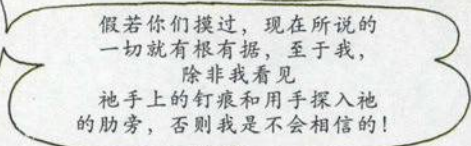 假若你们摸过，现在所说的
一切就有根有据，至于我，
除非我看见
祂手上的钉痕和用手探入祂
的肋旁，否则我是不会相信的！